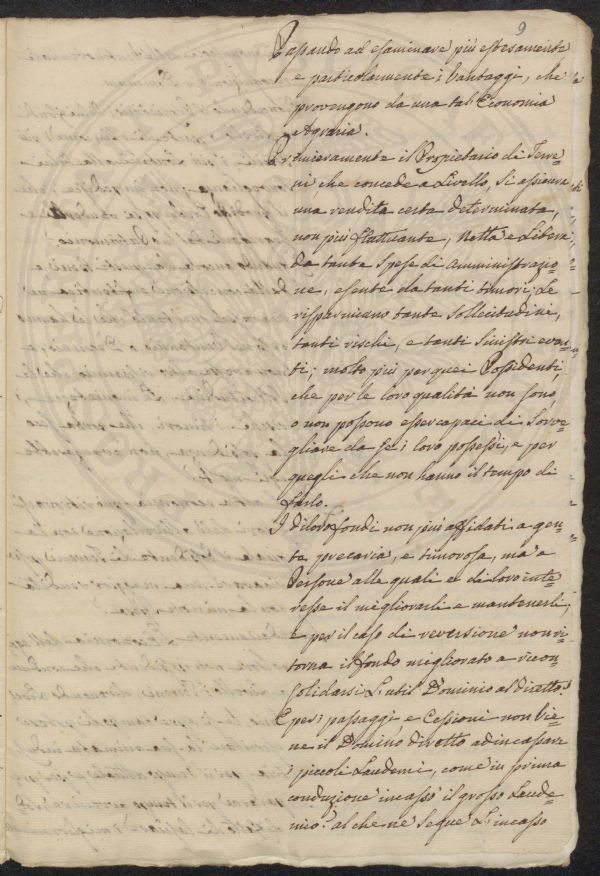 9
Passando ad esaminare più estesamente
e particolarmente i Vantaggi, che
provengono da una tal Economia
Agraria.
Primieramente il Propietario di Terre=
ni che concede a Livello, si assicura
una rendita certa determinata,
non più flattuante, Netta e Libera
da tante spese di amministrazio=
ne, esente da tanti timori; Le
risparmiano tante sollecitudini,
tanti rischi, e tanti sinistri even=
ti; molto più per quei Possidenti,
che per le loro qualità non sono,
o non possono esser capaci di sorve=
gliare da se i loro possessi, e per
quegli che non hanno il tempo di
farlo.
I di loro fondi non più affidati a gen=
te precaria, e timorosa, mà a
Persone alle quali è di loro inte=
resse il migliorarli e mantenerli,
e per il caso di reversione non ri=
torna il fondo migliorato a ricon=
solidarsi L'util Dominio al diretto?
E per i passaggi e Cessioni non vie=
ne il Dominio diretto ad incassare
i piccoli Laudemi, come in prima
conduzione incassò il grosso Laude=
mio? al che ne segue L'incasso